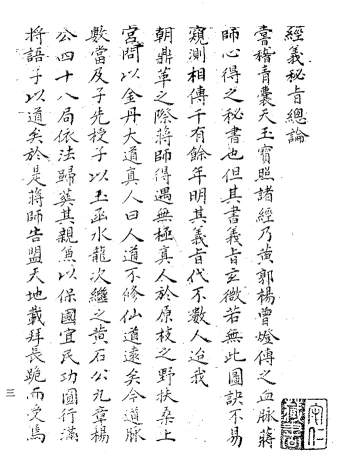 經義秘旨總論
嘗稽青囊天玉寶照諸經乃黃郭楊曾燈傳之血脉蔣
師心得之秘書也但其書義旨玄微若無此圖訣不易
窺測相傳千有餘年明其義旨代不數人迨我
朝鼎革之際蔣師得遇無極真人於原枝之野扶桑上
宮問以金丹大道真人曰人道不修仙道遠矣今道脉
數當及子先授子以玉函水龍次繼之黃石公九章楊
公四十八局依法歸葬其親兼以保國宜民功圓行滿
將語子以道矣於是蔣師告盟天地載拜長跪而受焉
三
守仁
藏書